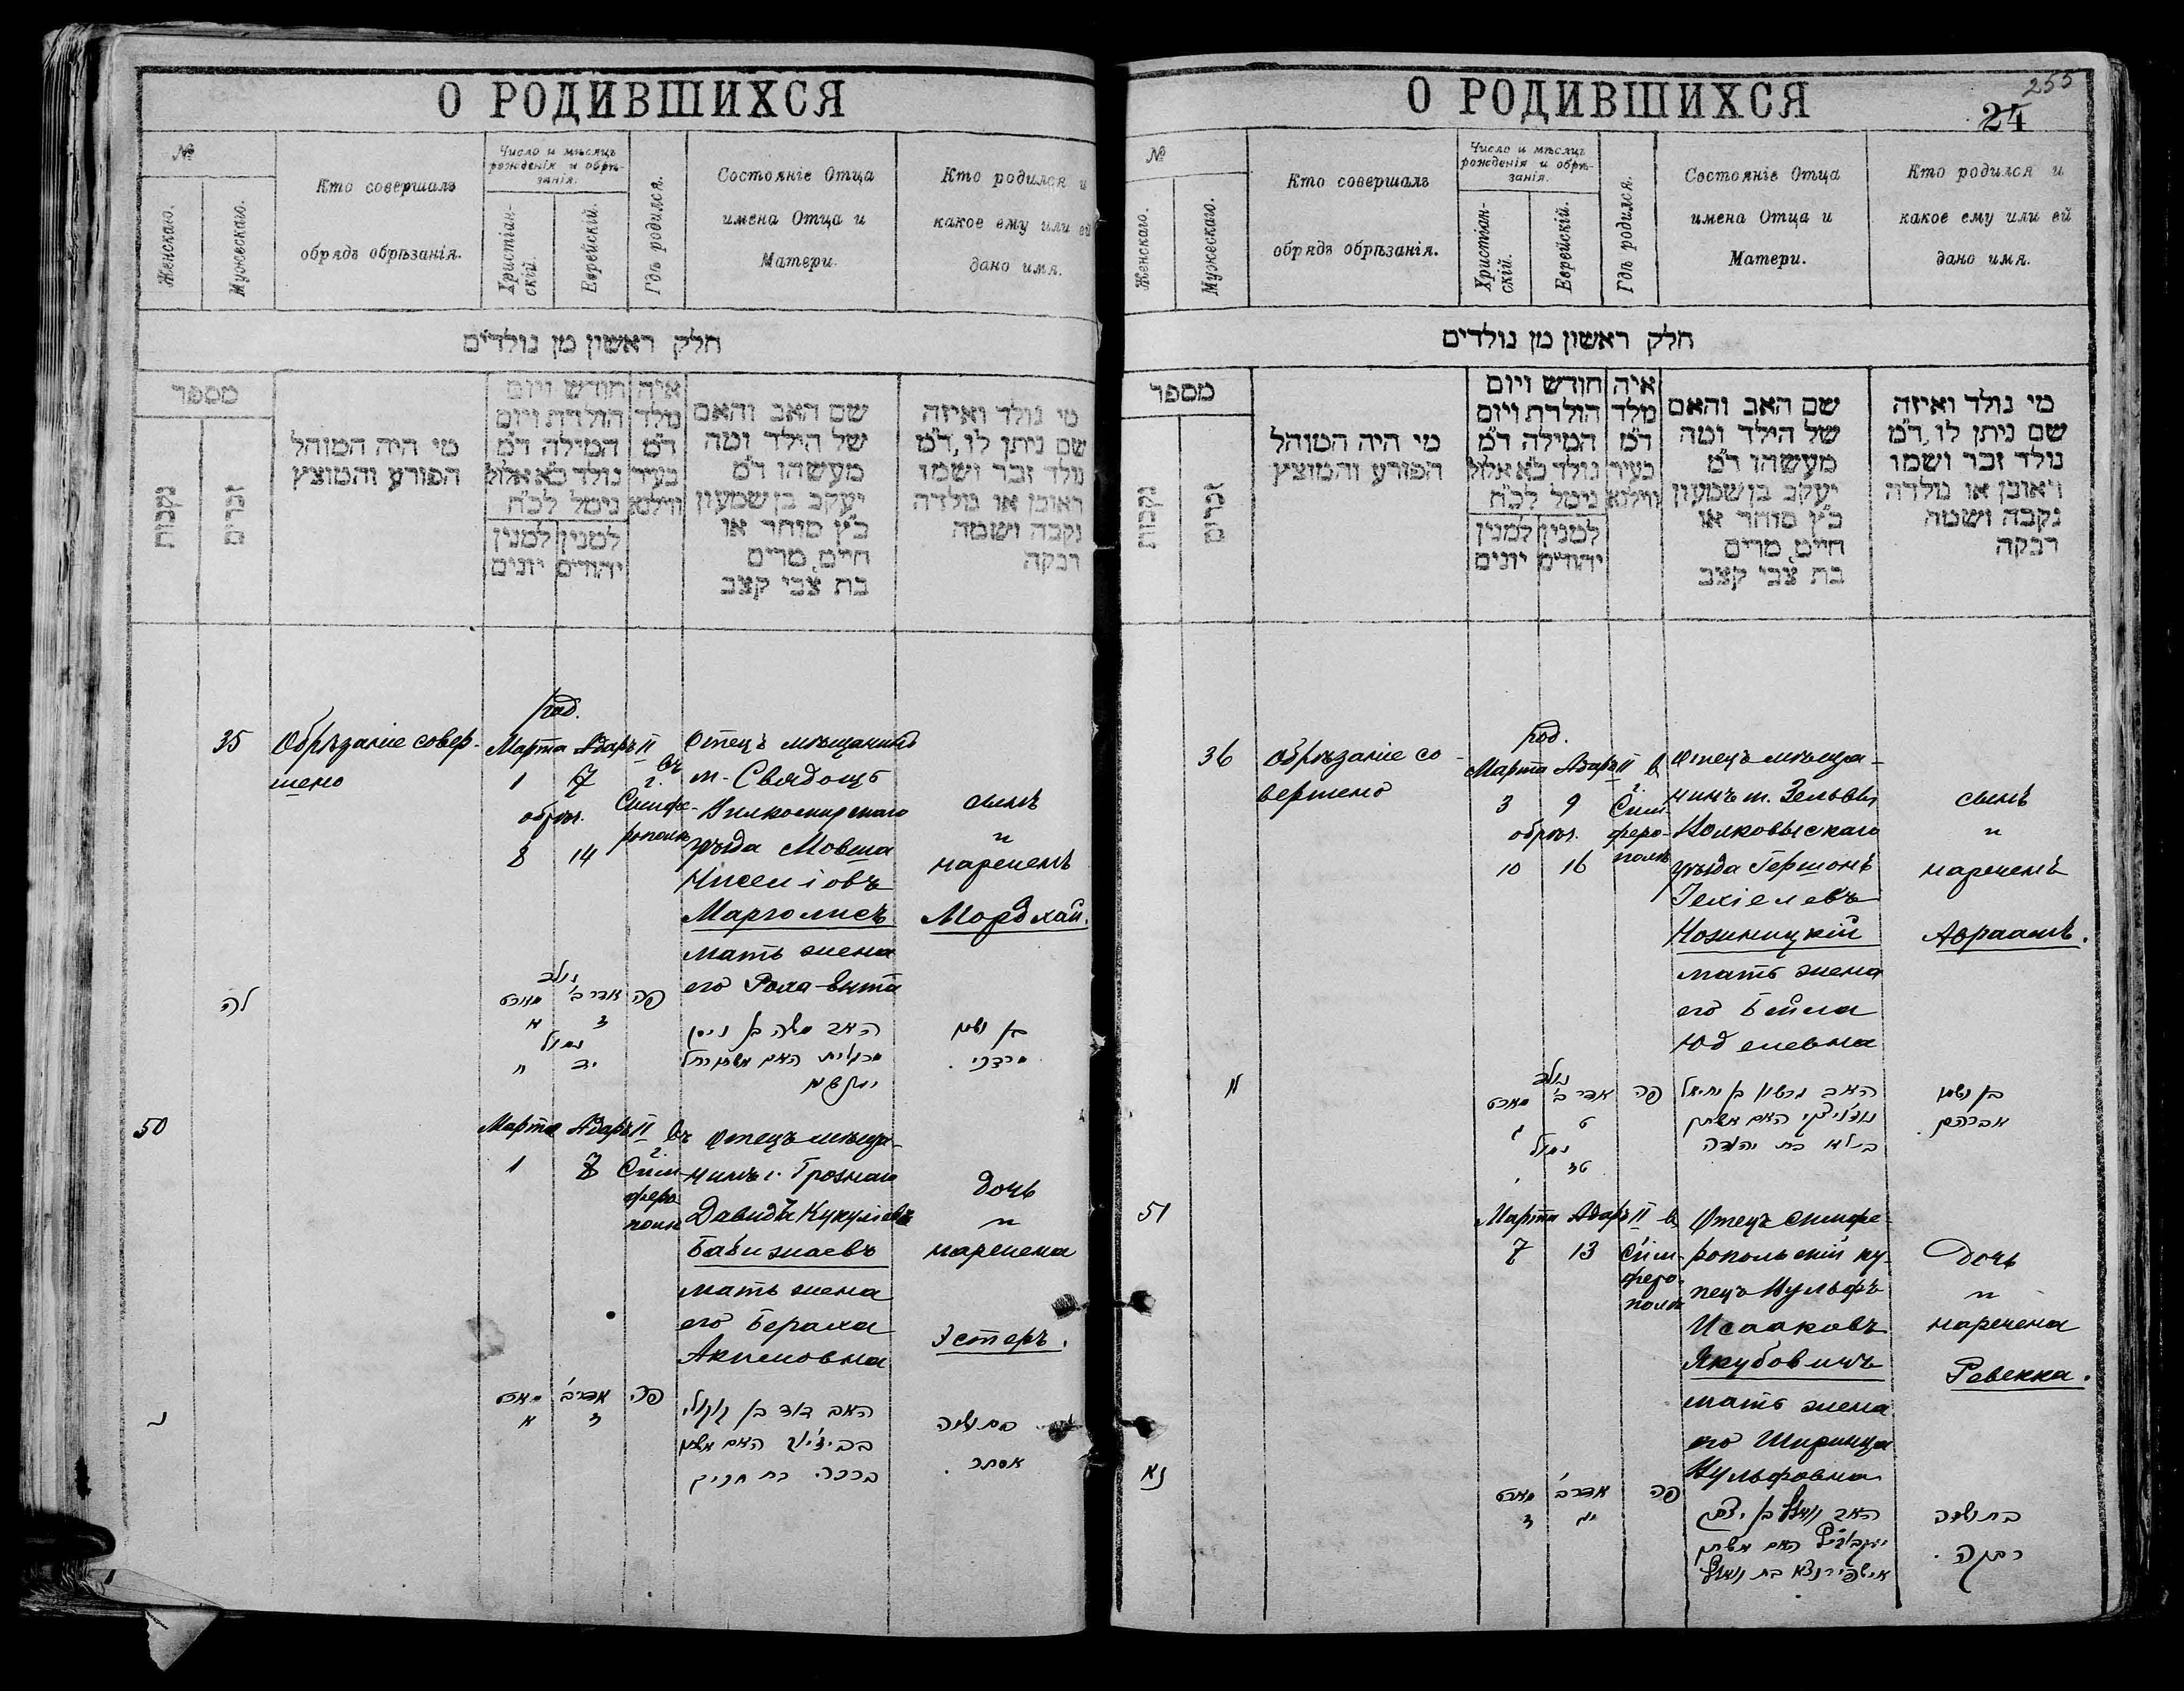 О РОДИВШИХСЯ
№
Женскаго.
Мужескаго.
Кто совершалъ
обрядъ обрѣзанія.
Число и мѣсяцъ
рожденія и обрѣ-
занія.
Христіан-
скій.
Еврейскій.
Гдѣ родился.
Состояніе Отца
имена Отца и
Матери.
Кто родился и
какое ему или ей
дано имя.
חלק ראשון מן נולדים
מספר
נקבות
זכרים
מי היה המוהל
הפורע והמוצץ
חודש ויום
הולדת ויום
המילה ד״מ
נולד כ״א אלול
נימל לכ״ח
למנין למנין
יהודים יונים
איה
מלד
ד״מ
בעיר
ווילנא
שם האב והאם
של הילד ומה
מעשהו ד״מ
יעקב בן שמעון
כ״ץ סוחר או
חיים, מרים
בת צבי קצב
מי נולד ואיזה
שם ניתן לו, ד״מ
נולד זכר ושמו
ראובן או נולדה
נקבה ושמה
רבקה
35
Обрѣзаніе совер-
шено
род.
Марта Адаръ II
1 7
обрѣз.
8 14
въ
г.
Симфе-
рополѣ
Отецъ мѣщанинъ
м. Свядощъ
Вилкомирскаго
уѣзда Мовша
Ниселіовъ
Марголисъ
мать жена
его Роха-Вита
сынъ
"
нареченъ
Мордхай.
לה
נולד
מארט אדר ב'
א ז
נמול
ח יד
פה
האב משה בן ניסן
מרגלית האם אשתו רחל
בן ושמו
מרדכי.
50
Марта Адаръ II
1 7
въ
г.
Сим-
феро-
полѣ
Отецъ мѣща-
нинъ г. Грознаго
Давидъ Кукуліевъ
Бабизаевъ
мать жена
его Бераха
Акимовна
дочь
"
наречена
Эстеръ.
נ
מארט אדר ב'
א ז
פה
האב דוד בן קוקולי
האם אשתו
ברכה בת
בת ושמה
אסתר.
О РОДИВШИХСЯ
255
24
№
Женскаго.
Мужескаго.
Кто совершалъ
обрядъ обрѣзанія.
Число и мѣсяцъ
рожденія и обрѣ-
занія.
Христіан-
скій.
Еврейскій.
Гдѣ родился.
Состояніе Отца
имена Отца и
Матери.
Кто родился и
какое ему или ей
дано имя.
חלק ראשון מן נולדים
מספר
נקבות
זכרים
מי היה המוהל
הפורע והמוצץ
חודש ויום
הולדת ויום
המילה ד״מ
נולד כ״א אלול
נימל לכ״ח
למנין למנין
יהודים יונים
איה
מלד
ד״מ
בעיר
ווילנא
שם האב והאם
של הילד ומה
מעשהו ד״מ
יעקב בן שמעון
כ״ץ סוחר או
חיים, מרים
בת צבי קצב
מי נולד ואיזה
שם ניתן לו, ד״מ
נולד זכר ושמו
ראובן או נולדה
נקבה ושמה
רבקה
36
Обрѣзаніе со-
вершено
род.
Марта Адаръ II
3 9
обрѣз.
10 16
въ
г.
Сим-
феро-
полѣ
Отецъ мѣща-
нинъ м. Зельвы
Волковыскаго
уѣзда Гершонъ
Іехіелевъ
Новницкій
мать жена
его Бейла
Юделевна
сынъ
"
нареченъ
Авраамъ.
לו
נולד
מארט אדר ב'
ג ט
נמול
י טז
פה
האב גרשון בן יחיאל
האם אשתו
ביילא בת יהודה
בן ושמו
אברהם.
51
Марта Адаръ II
7 13
въ
Сим-
феро-
полѣ
Отецъ симфе-
ропольскій ку-
пецъ Вульфъ
Исааковъ
Якубовичъ
мать жена
его Ширинца
Вульфовна
дочь
"
наречена
Ревекка.
נא
מארט אדר ב'
ז יג
פה
האב וואלף בן יצחק
יאקבוביץ האם אשתו
בת וואלף
בת ושמה
רבקה.